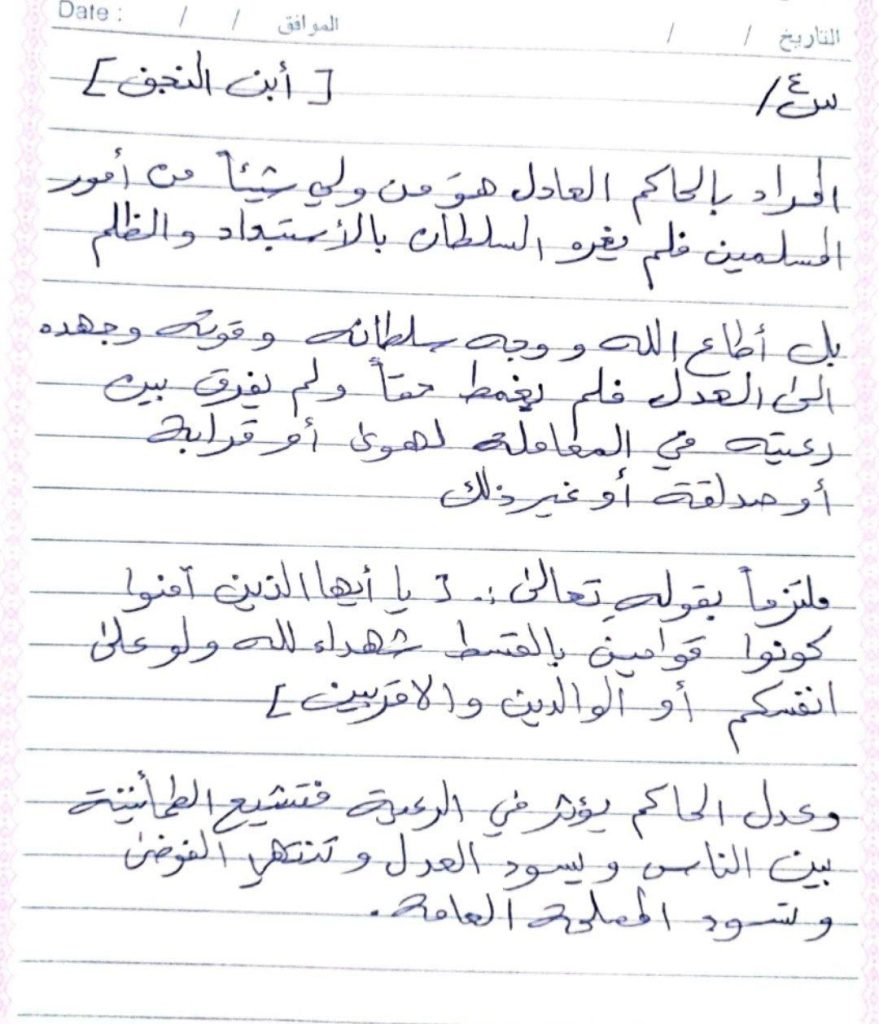 التاريخ / / الموافق / / Date :
س٤/ [ أبن النجف ]
المراد بالحاكم العادل هوَ من ولي شيئاً من أمور
المسلمين فلم يغره السلطان بالأستبداد والظلم
بل أطاع الله و وجه سلطانه وقوته وجهده
الى العدل فلم يغمط حقاً ولم يفرق بين
رعيته في المعاملة لهوى أو قرابة
أو صداقة أو غير ذلك
ملتزماً بقولهِ تعالى :. [ يا أيها الذين آمنوا
كونوا قوامين بالقسط شهداء لله ولو على
انفسكم أو الوالدين والاقربين ]
وعدل الحاكم يؤثر في الرعية فتشيع الطمأنينة
بين الناس ويسود العدل وتنتهي الفوضى
وتسود المصلحة العامة .